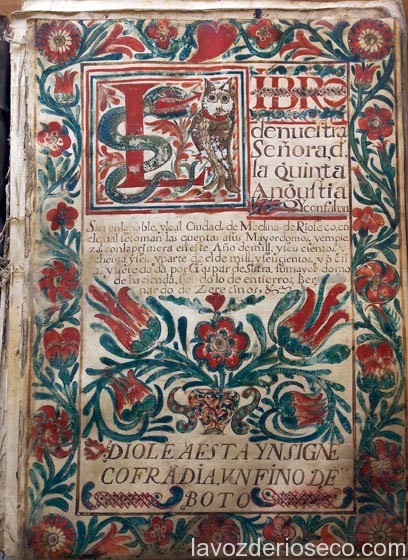 LIBRO
de nuestra
Señora, d
la quinta
Angustia
y confalon
Sita en la noble, y leal Ciudad de Medina de Rioseco, en
el qual se toman las cuentas a sus Mayordomos, y empie
za con la primera en este Año de mill, y seiscientos, y
ochenta, y seis, y parte de el de mill, y seiscientos, y oche
ta, y siete dada por Gaspar de su mayordomo
de hacienda, siendolo de entierros, Ber
nardo de Zerecinos,
DIOLE A ESTA YNSIGNE
COFRADIA, VN FINO DE
BOTO
lavozderioseco.com